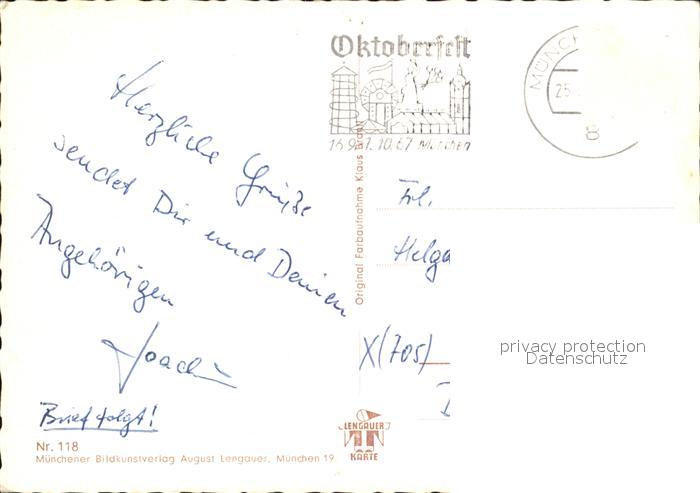 Herzliche Grüße
sendet Dir und Deinen
Angehörigen
Joachim
Brief folgt!
Nr. 118
Münchener Bildkunstverlag August Lengauer, München 19
Original Farbaufnahme Klaus
Oktoberfest
16.9.-1.10.67 München
MÜNCH
25.
8
Frl.
Helga
X(705)
LENGAUER
KARTE
privacy protection
Datenschutz